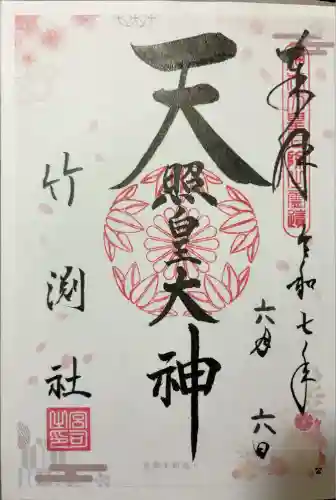 奉拝
令和七年
六月六日
天照皇大神
竹渕社
宮司之印